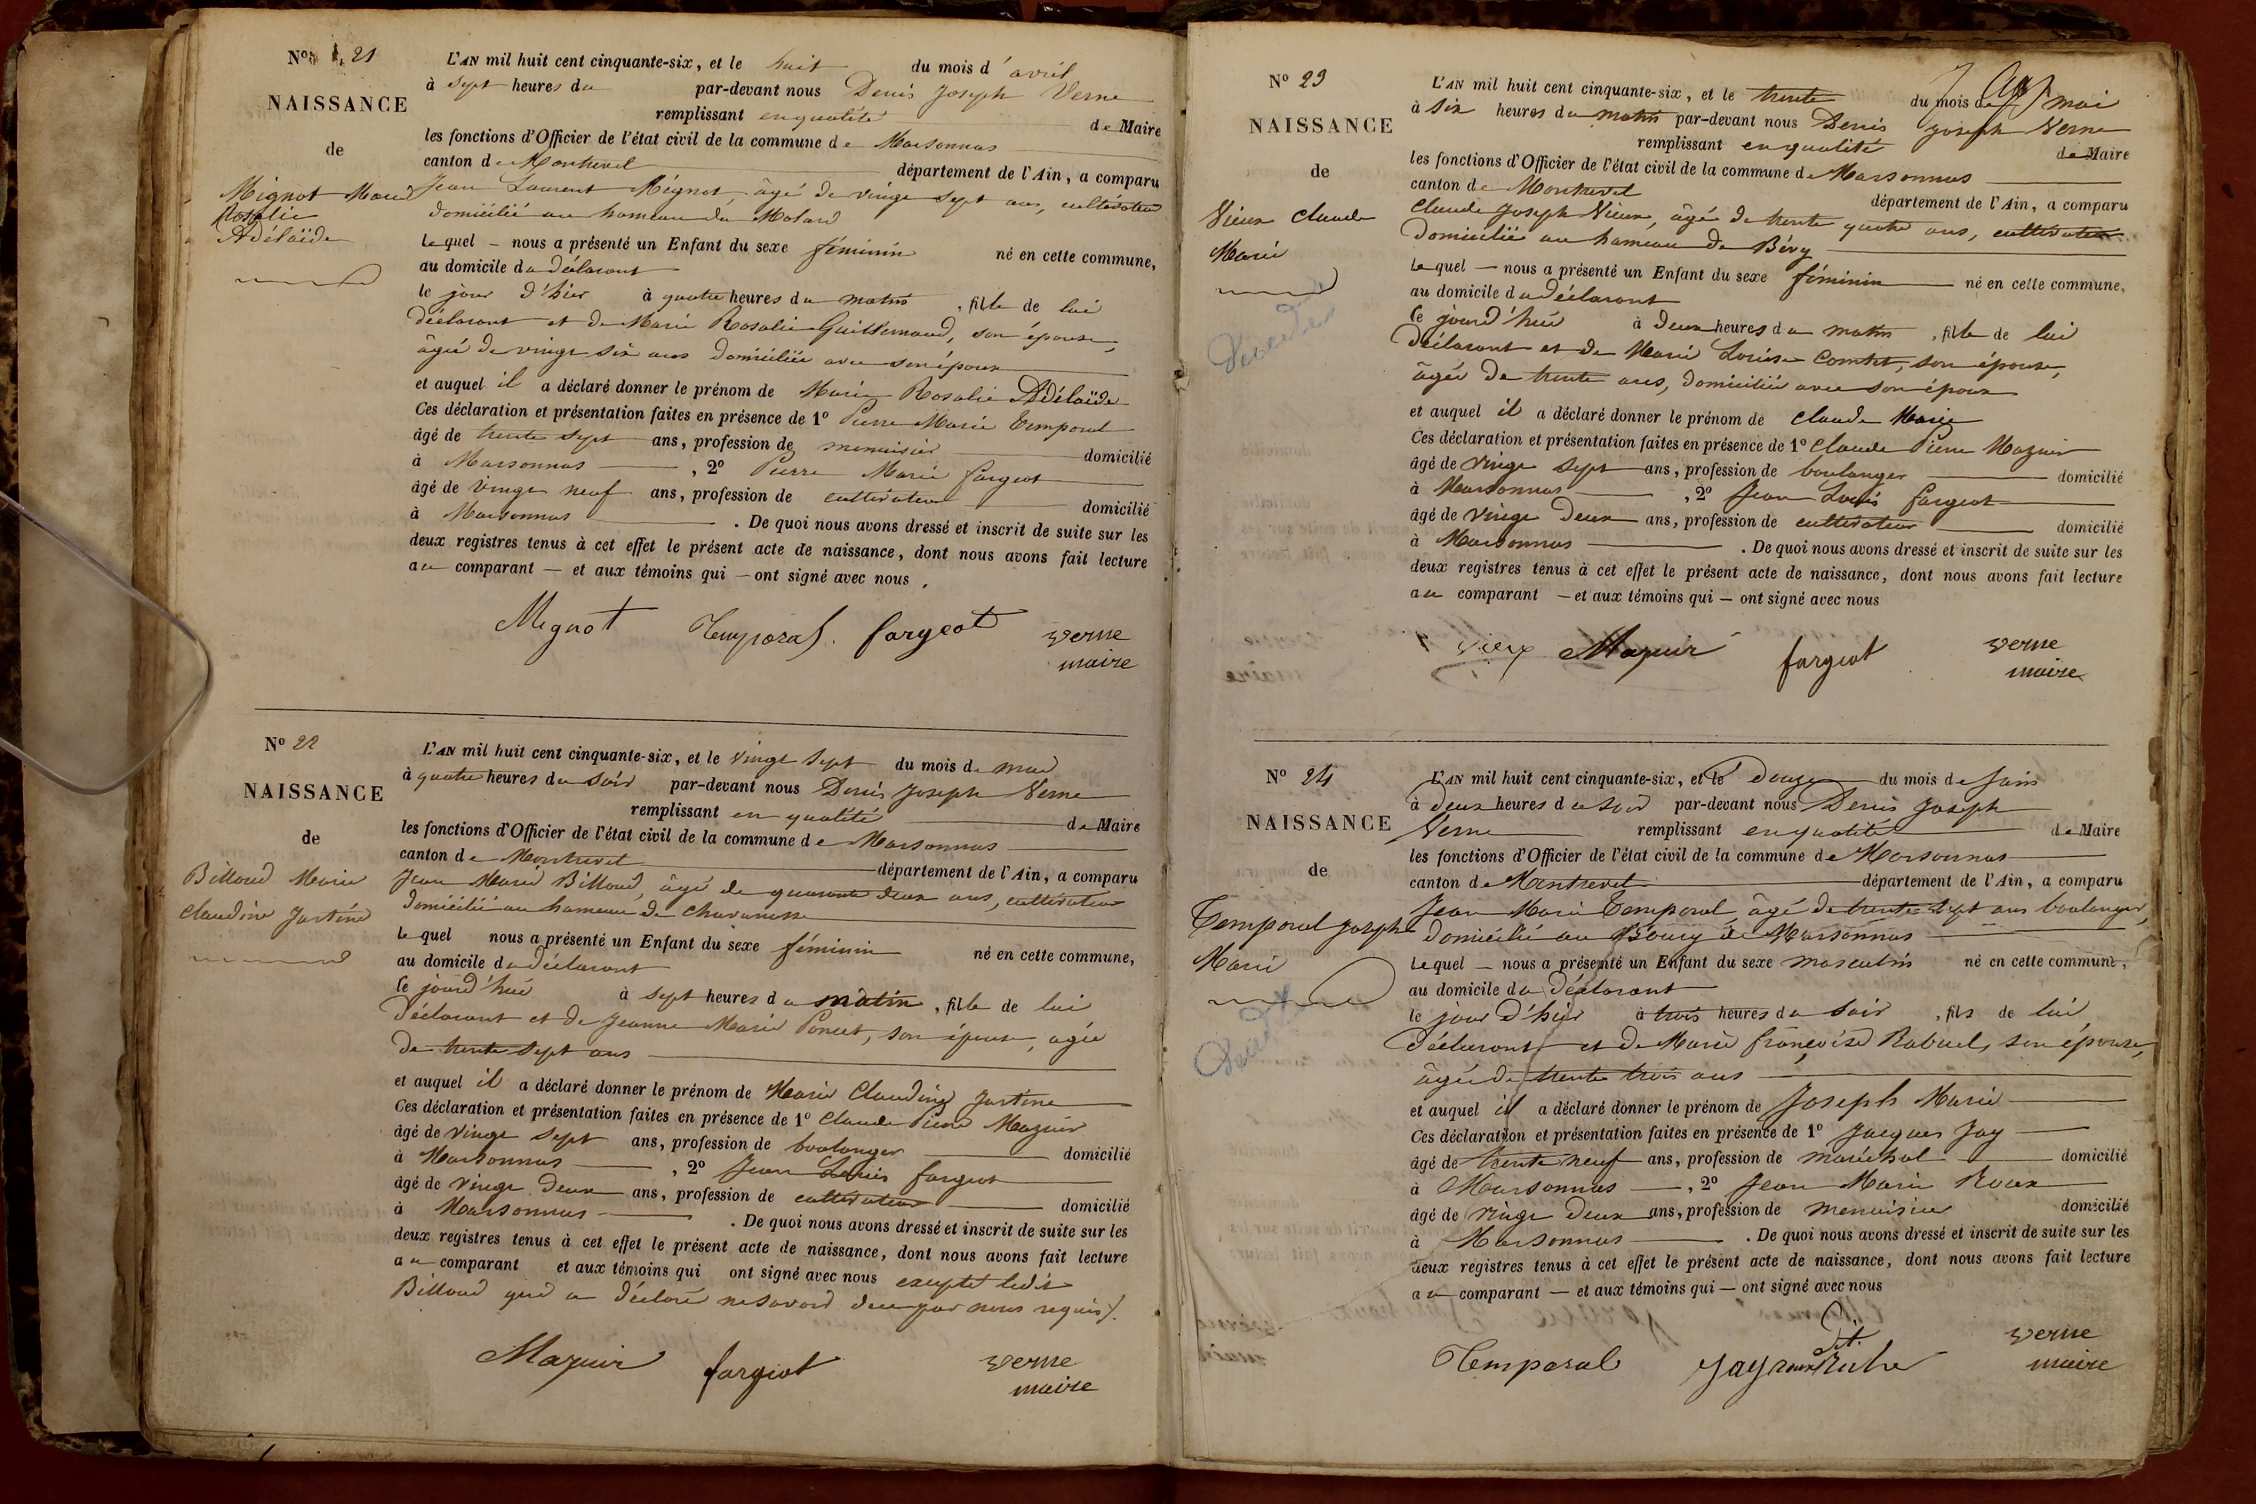 Nº 21
NAISSANCE
de
Mignot Marie
Rosalie
Adélaïde
L'AN mil huit cent cinquante-six, et le huit du mois d'avril
à sept heures du par-devant nous Denis Joseph Verne
remplissant en qualité de Maire
les fonctions d'Officier de l'état civil de la commune de Marsonnas
canton de Montrevel département de l'Ain, a comparu
Jean Laurent Mignot, âgé de vingt sept ans, cultivateur
domicilié au hameau du Molard
Lequel nous a présenté un Enfant du sexe féminin né en cette commune,
au domicile du déclarant
le jour d'hier à quatre heures du matin, fille de lui
déclarant et de Marie Rosalie Guillermaud, son épouse,
âgée de vingt six ans domiciliée avec son époux
et auquel il a déclaré donner le prénom de Marie Rosalie Adélaïde
Ces déclaration et présentation faites en présence de 1º Pierre Marie Temporal
âgé de trente sept ans, profession de menuisier domicilié
à Marsonnas, 2º Pierre Marie fargeot
âgé de vingt neuf ans, profession de cultivateur domicilié
à Marsonnas. De quoi nous avons dressé et inscrit de suite sur les
deux registres tenus à cet effet le présent acte de naissance, dont nous avons fait lecture
au comparant — et aux témoins qui — ont signé avec nous.
Mignot Temporal fargeot verne
maire
Nº 22
NAISSANCE
de
Billoud Marie
Claudine Justine
L'AN mil huit cent cinquante-six, et le vingt sept du mois de mai
à quatre heures du soir par-devant nous Denis Joseph Verne
remplissant en qualité de Maire
les fonctions d'Officier de l'état civil de la commune de Marsonnas
canton de Montrevel département de l'Ain, a comparu
Jean Marie Billoud, âgé de quarante deux ans, cultivateur
domicilié au hameau de
Lequel nous a présenté un Enfant du sexe féminin né en cette commune,
au domicile du déclarant
ce jourd'hui à sept heures du matin, fille de lui
déclarant et de Jeanne Marie Poncet, son épouse, agée
de trente sept ans
et auquel il a déclaré donner le prénom de Marie Claudine Justine
Ces déclaration et présentation faites en présence de 1º Claude Pierre Mazuir
âgé de vingt sept ans, profession de boulanger domicilié
à Marsonnas, 2º Jean Louis fargeot
âgé de vingt deux ans, profession de cultivateur domicilié
à Marsonnas. De quoi nous avons dressé et inscrit de suite sur les
deux registres tenus à cet effet le présent acte de naissance, dont nous avons fait lecture
au comparant et aux témoins qui ont signé avec nous excepté ledit
Billoud qui a déclaré ne savoir de ce par nous requis/.
Mazuir fargeot verne
maire
Nº 23
NAISSANCE
de
Vieux Claude
Marie
L'AN mil huit cent cinquante-six, et le trente du mois de mai
à six heures du matin par-devant nous Denis Joseph Verne
remplissant en qualité de Maire
les fonctions d'Officier de l'état civil de la commune de Marsonnas
canton de Montrevel département de l'Ain, a comparu
Claude Joseph Vieux, âgé de trente quatre ans, cultivateur
domicilié au hameau de Béry
Lequel — nous a présenté un Enfant du sexe féminin né en cette commune,
au domicile du déclarant
ce jourd'hui à deux heures du matin, fille de lui
déclarant et de Marie Louise Comtet, son épouse,
âgée de trente ans, domiciliée avec son époux
et auquel il a déclaré donner le prénom de Claude Marie
Ces déclaration et présentation faites en présence de 1º Claude Pierre Mazuir
âgé de vingt sept ans, profession de boulanger domicilié
à Marsonnas, 2º Jean Louis fargeot
âgé de vingt deux ans, profession de cultivateur domicilié
à Marsonnas. De quoi nous avons dressé et inscrit de suite sur les
deux registres tenus à cet effet le présent acte de naissance, dont nous avons fait lecture
au comparant — et aux témoins qui — ont signé avec nous
vieux Mazuir fargeot verne
maire
Nº 24
NAISSANCE
de
Temporal Joseph
Marie
L'AN mil huit cent cinquante-six, et le Douze du mois de Juin
à deux heures du soir par-devant nous Denis Joseph
Verne remplissant en qualité de Maire
les fonctions d'Officier de l'état civil de la commune de Marsonnas
canton de Montrevel département de l'Ain, a comparu
Jean Marie Temporal, âgé de trente sept ans boulanger,
domicilié au Bourg de Marsonnas
Lequel — nous a présenté un Enfant du sexe masculin né en cette commune,
au domicile du déclarant
le jour d'hier à trois heures du soir, fils de lui
déclarant et de Marie françoise Rabuel, son épouse,
âgée de trente trois ans
et auquel il a déclaré donner le prénom de Joseph Marie
Ces déclaration et présentation faites en présence de 1º Jacques Jay
âgé de trente neuf ans, profession de maréchal domicilié
à Marsonnas, 2º Jean Marie Roux
âgé de vingt deux ans, profession de menuisier domicilié
à Marsonnas. De quoi nous avons dressé et inscrit de suite sur les
deux registres tenus à cet effet le présent acte de naissance, dont nous avons fait lecture
au comparant — et aux témoins qui — ont signé avec nous
Temporal Jay roux dit verne
maire